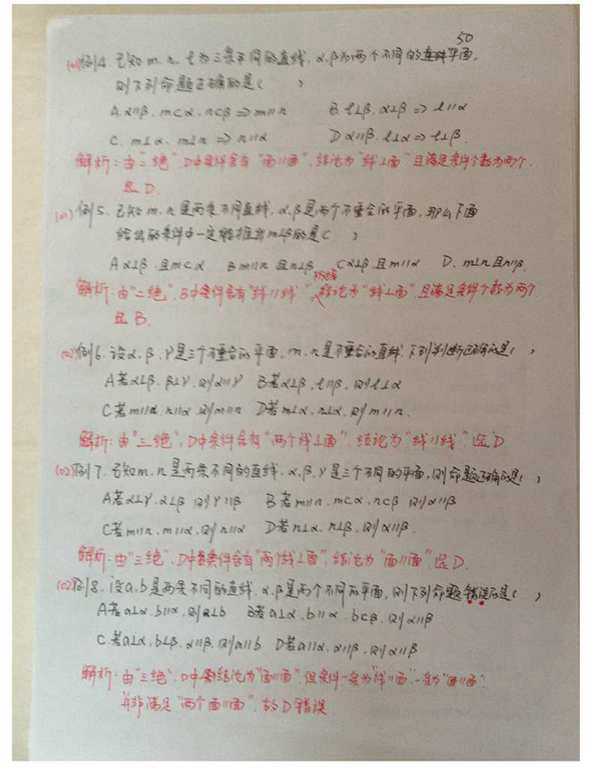 50
(01)例4. 已知m、n、l为三条不同的直线,α、β为两个不同的平面,
则下列命题正确的是( )
A.α∥β, m⊂α, n⊂β ⇒ m∥n B. l⊥β, α⊥β ⇒ l∥α
C. m⊥α, m⊥n ⇒ n∥α D α∥β, l⊥α ⇒ l⊥β.
解析:由“三绝”,D中条件含有“面∥面”,结论为“线⊥面”且满足条件个数为两个.
选D.
(01)例5. 已知m、n是两条不同直线,α、β是两个不重合的平面,那么下面
给出的条件中一定能推出m⊥β的是( )
A α⊥β,且m⊂α B m∥n 且n⊥β C α⊥β且m∥α D. m⊥n且n∥β.
解析:由“二绝”,B中条件含有“线∥线”,结论为“线⊥面”且满足条件个数为两个
选B.
(02)例6. 设α、β、γ是三个不重合的平面,m、n是不重合的直线,下列判断正确的是( )
A若α⊥β, β⊥γ,则α∥γ B若α⊥β, l∥β,则l⊥α
C若m∥α, n∥α,则m∥n D若m⊥α, n⊥α,则m∥n.
解析:由“三绝”,D中条件含有“两个线⊥面”,结论为“线∥线”,选D
(02)例7. 已知m、n是两条不同的直线,α、β、γ是三个不同的平面,则命题正确的是( )
A若α⊥γ, α⊥β 则γ∥β B若m∥n, m⊂α, n⊂β 则α∥β
C若m∥n, m∥α,则n∥α D若n⊥α, n⊥β,则α∥β.
解析:由“三绝”,D中条件含有“两个线⊥面”,结论为“面∥面”,选D.
(02)例8. 设a、b是两条不同的直线,α、β是两个不同的平面,则下列命题错误的是( )
A若a⊥α, b∥α,则a⊥b B若a⊥α, b∥a, b⊂β,则α⊥β
C.若a⊥α, b⊥β, α∥β,则a∥b D若a∥α, a∥β,则α∥β
解析:由“三绝”,D中结论为“面∥面”,但条件一个为“线∥面”,一个为“面∥面”
并非满足“两个面∥面”,故D错误.